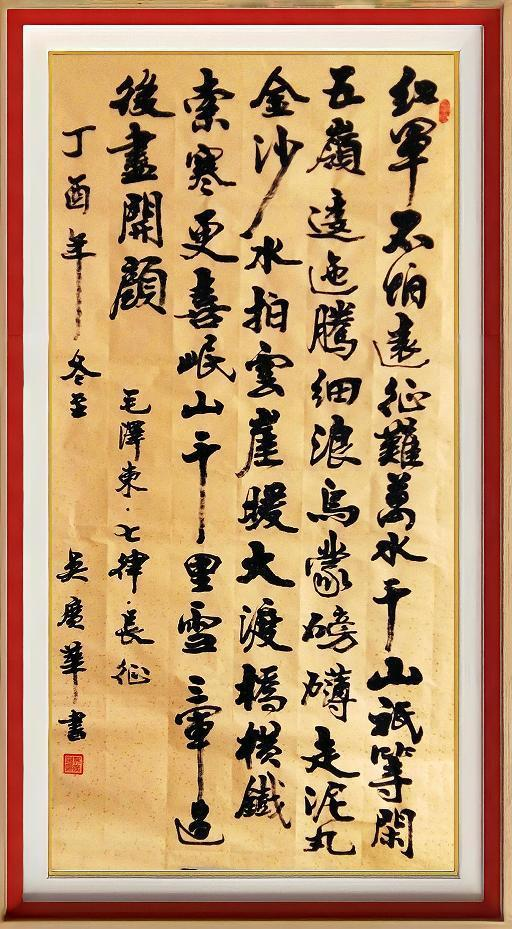 紅軍不怕遠征難萬水千山祇等閑
五嶺逶迤騰細浪烏蒙磅礴走泥丸
金沙水拍雲崖暖大渡橋橫鐵
索寒更喜岷山千里雪三軍過
後盡開顏
毛澤東·七律·長征
丁酉年冬至 吳廣華書